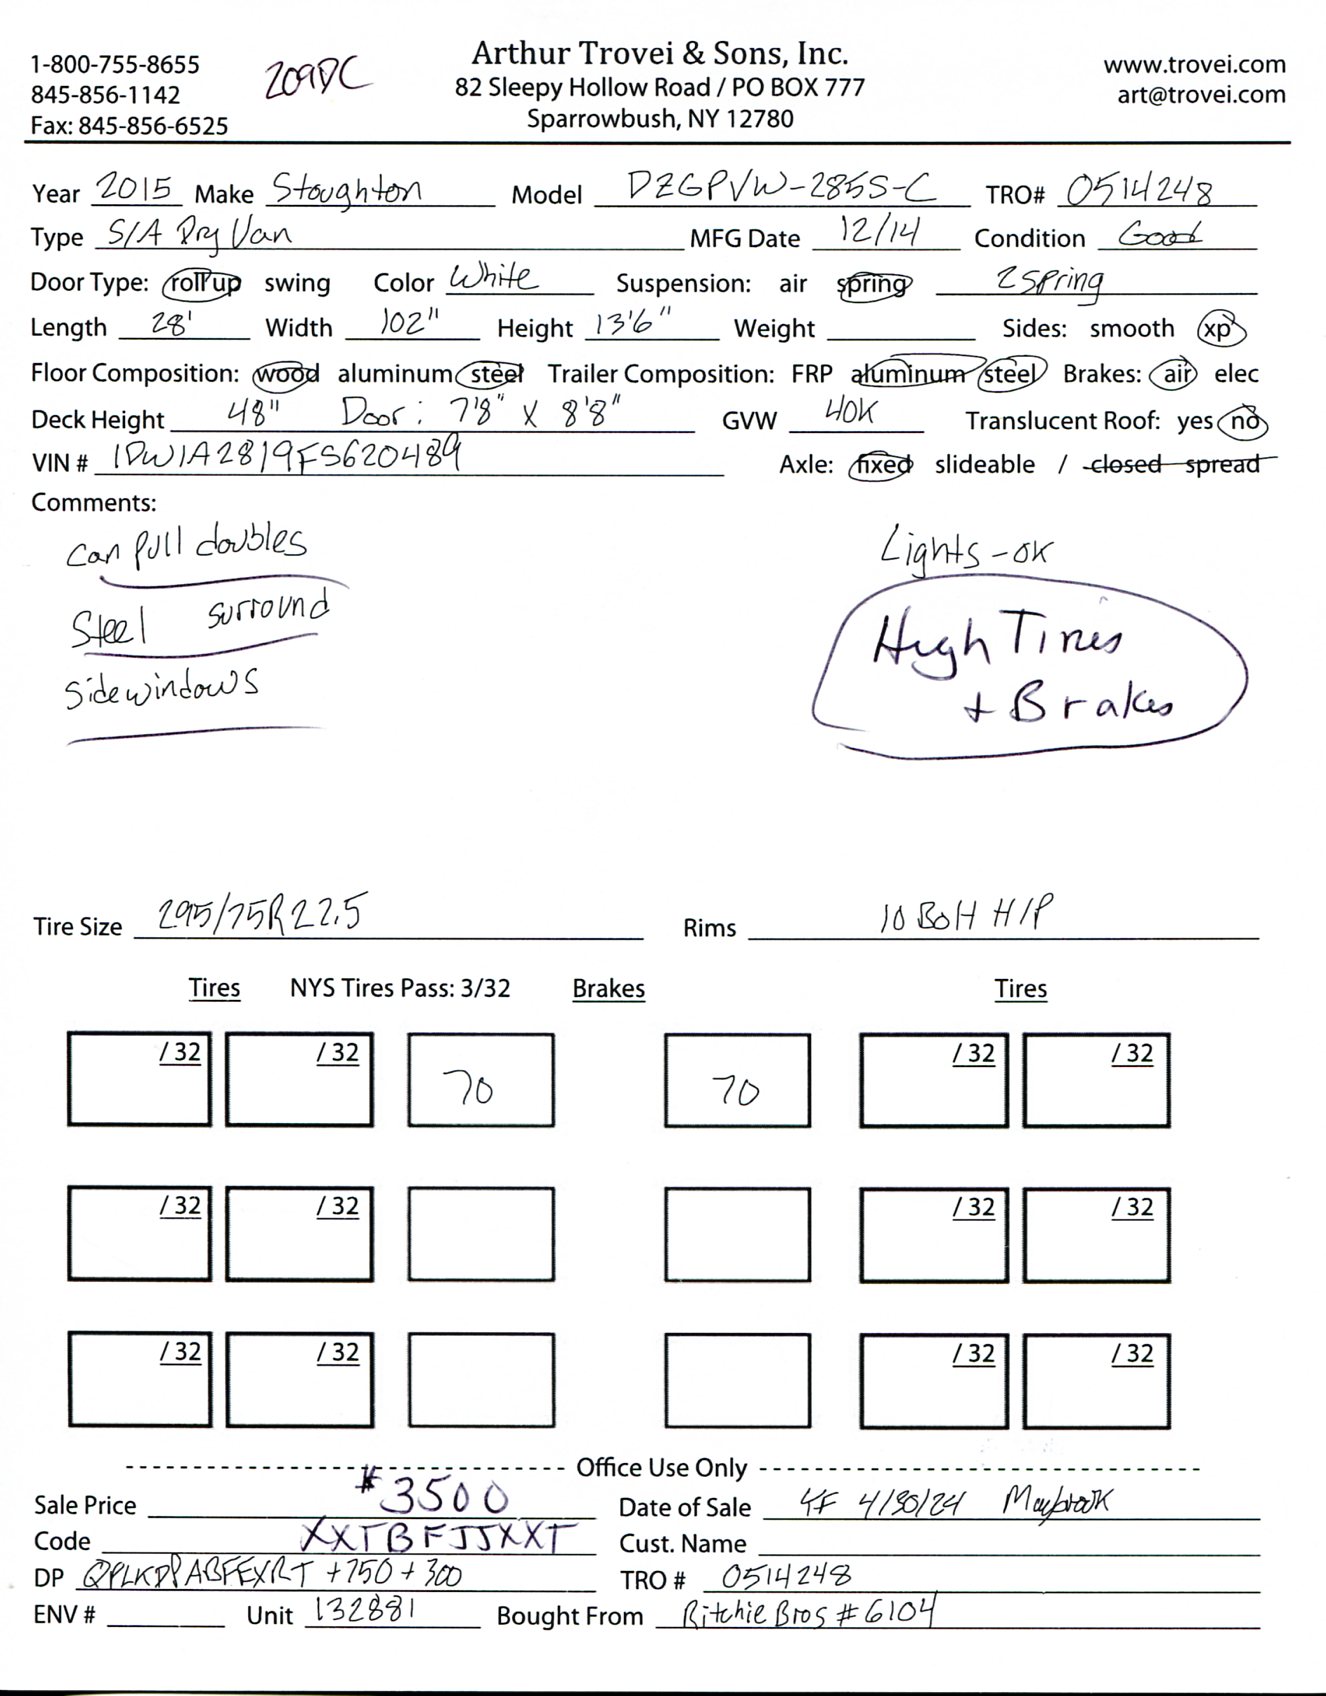 1-800-755-8655
845-856-1142
Fax: 845-856-6525
209DC
Arthur Trovei & Sons, Inc.
82 Sleepy Hollow Road / PO BOX 777
Sparrowbush, NY 12780
www.trovei.com
art@trovei.com
Year 2015 Make Stoughton Model DZGPVW-285S-C TRO# 0514248
Type S/A Dry Van MFG Date 12/14 Condition Good
Door Type: roll up swing Color White Suspension: air spring 2 spring
Length 28' Width 102" Height 13'6" Weight Sides: smooth xp
Floor Composition: wood aluminum steel Trailer Composition: FRP aluminum steel Brakes: air elec
Deck Height 48" Door: 7'8" X 8'8" GVW 40K Translucent Roof: yes no
VIN # 1DW1A2819FS620489 Axle: fixed slideable / closed spread
Comments:
can pull doubles
Steel surround
side windows
Lights-OK
High Tires
+ Brakes
Tire Size 295/75R22.5 Rims 10 BOH H/P
Tires NYS Tires Pass: 3/32 Brakes Tires
/ 32 / 32 70 70 / 32 / 32
/ 32 / 32 / 32 / 32
/ 32 / 32 / 32 / 32
Office Use Only
Sale Price $3500 Date of Sale 4/30/24 Maybrook
Code XXTBFJJXXT Cust. Name
DP QPLKDPABFEXRT +750+300 TRO # 0514248
ENV # Unit 132881 Bought From Ritchie Bros #6104